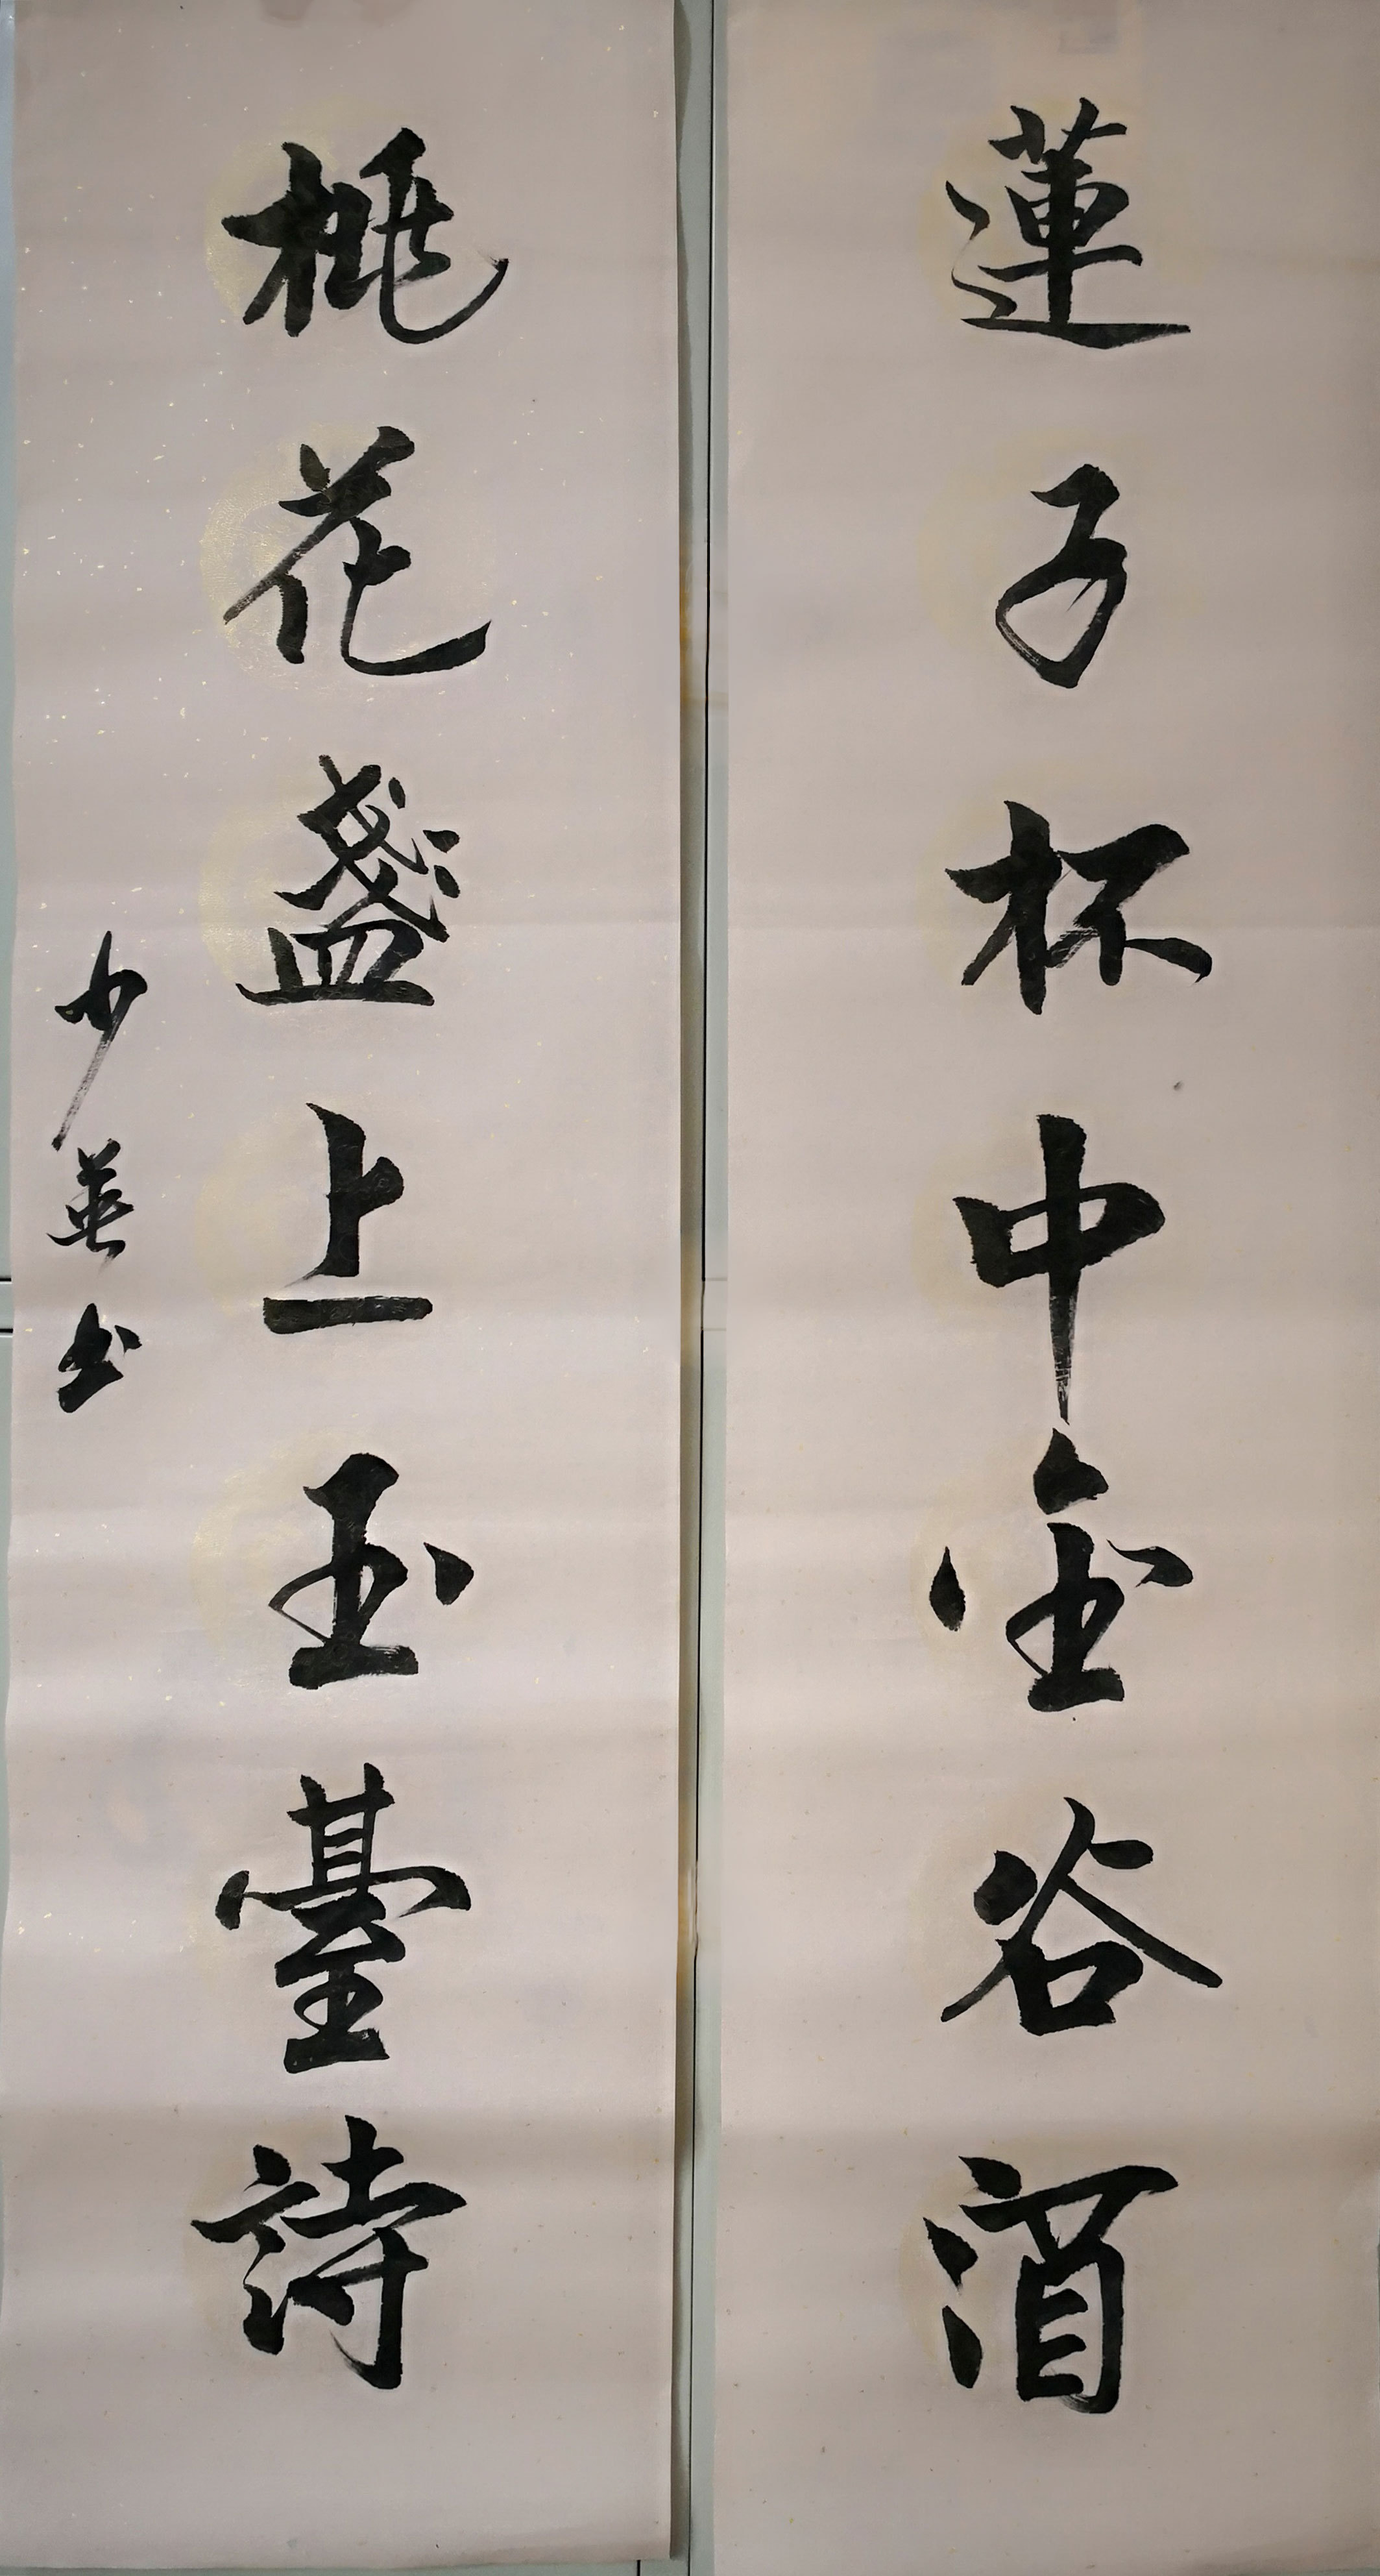 蓮子杯中金谷酒
桃花盞上玉臺詩
少英书